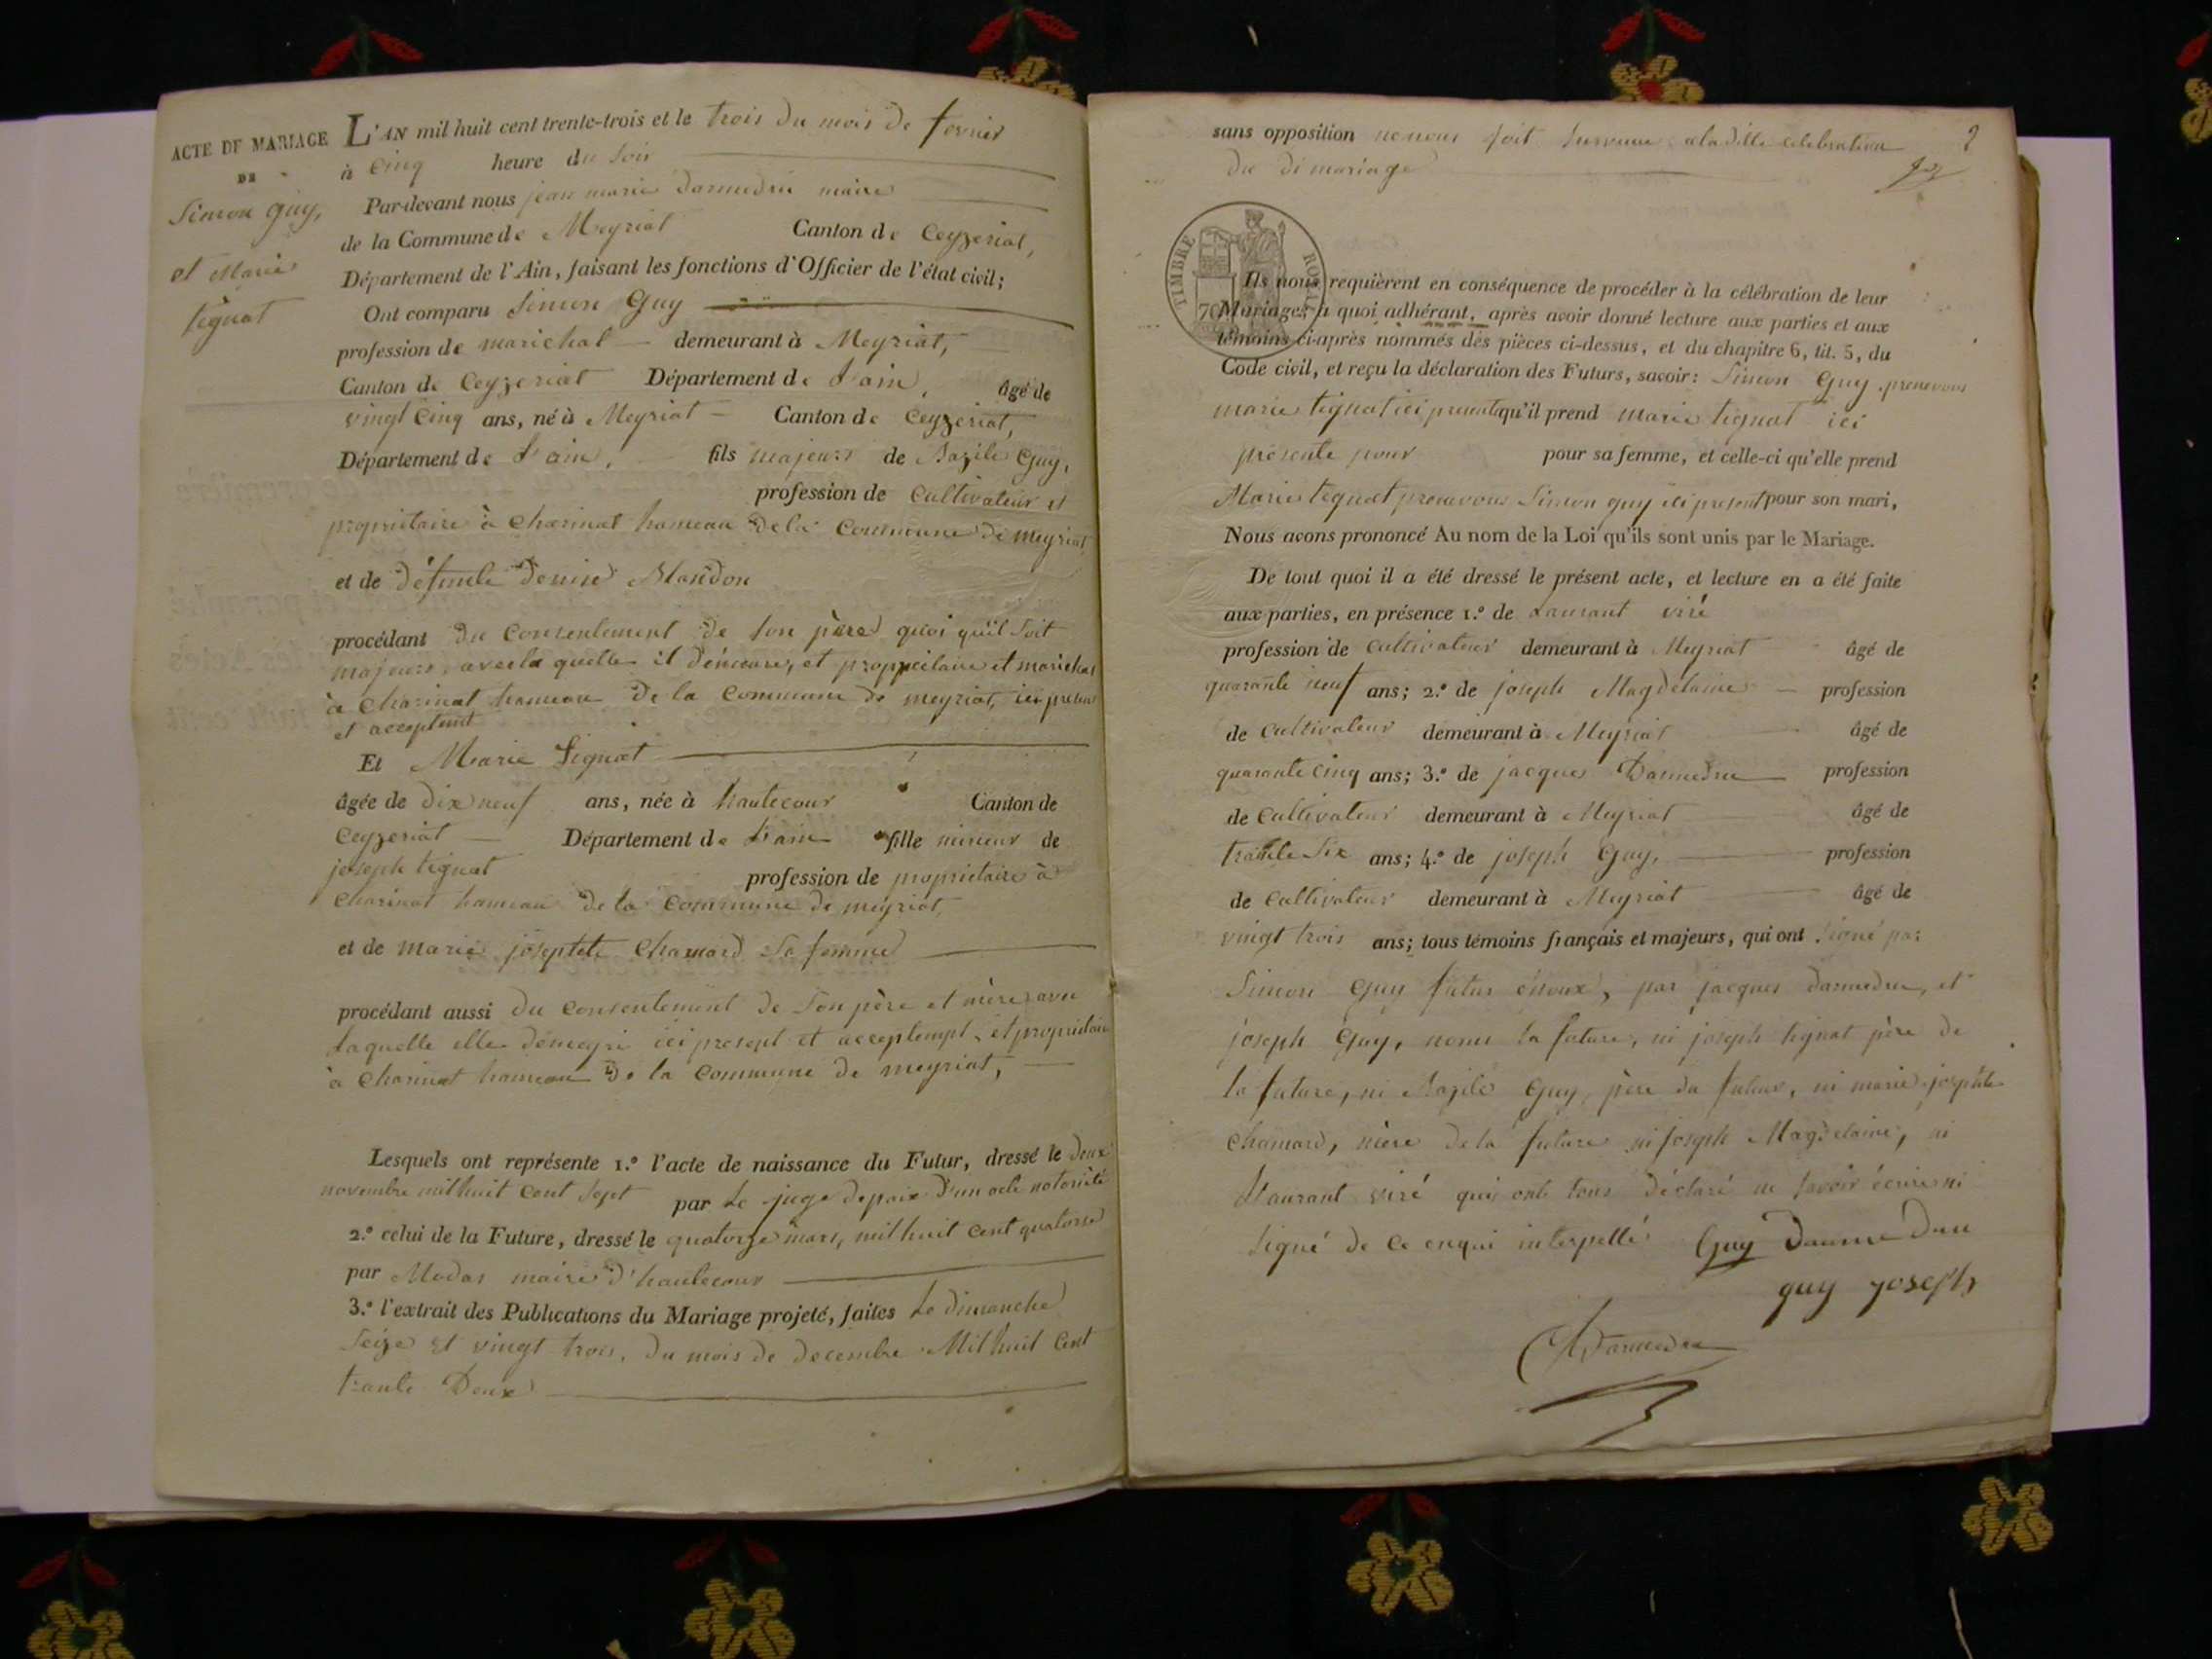 ACTE DE MARIAGE
DE
Simon guy,
et Marie
tignat
L'AN mil huit cent trente-trois et le trois du mois de fevrier
à cinq heure du soir
Par-devant nous jean marie darmedru maire
de la Commune de Meyriat Canton de Ceyzeriat,
Département de l'Ain, faisant les fonctions d'Officier de l'état civil;
Ont comparu Simon Guy
profession de marichal demeurant à Meyriat,
Canton de Ceyzeriat Département de L'ain, âgé de
vingt cinq ans, né à Meyriat Canton de Ceyzeriat,
Département de L'ain, fils majeur de Bazile Guy,
profession de cultivateur et
propriétaire à charinat hameau de la commune de meyriat
et de défunte denise Blandon
procédant du consentement de son père quoi qu'il soit
majeur, avec la quelle il demeure, et propriétaire et marichal
à charinat hameau de la commune de meyriat, ici présent
et acceptent
Et Marie Tignat
âgée de dix neuf ans, née à hautecour Canton de
Ceyzeriat Département de L'ain fille mineur de
joseph tignat profession de propriétaire à
charinat hameau de la commune de meyriat,
et de marie josephte Chanard sa femme
procédant aussi du consentement de son père et mère avec
laquelle elle demeure ici présent et acceptempt, et propriétaire
à charinat hameau de la commune de meyriat,
Lesquels ont représente 1.º l'acte de naissance du Futur, dressé le deux
novembre mil huit cent sept par Le juge de paix d'un acte notoriété
2.º celui de la Future, dressé le quatorze mars, mil huit cent quatorse
par Modas maire d'hautecour
3.º l'extrait des Publications du Mariage projeté, faites Le dimanche
Seize et vingt trois, du mois de decembre Mil huit Cent
trante Deux
sans opposition ne nous soit survenu a la ditte celebration
du di mariage
2
TIMBRE ROYAL
70
Ils nous requièrent en conséquence de procéder à la célébration de leur
Mariage; à quoi adhérant, après avoir donné lecture aux parties et aux
témoins ci-après nommés des pièces ci-dessus, et du chapitre 6, tit. 5, du
Code civil, et reçu la déclaration des Futurs, savoir: Simon Guy prenevous
marie tignat ici presente qu'il prend marie tignat ici
présente pour pour sa femme, et celle-ci qu'elle prend
Marie tignat prenevous Simon guy ici present pour son mari,
Nous avons prononcé Au nom de la Loi qu'ils sont unis par le Mariage.
De tout quoi il a été dressé le présent acte, et lecture en a été faite
aux parties, en présence 1.º de Laurant viré
profession de cultivateur demeurant à Meyriat âgé de
quarante neuf ans; 2.º de joseph Magdelaine profession
de Cultivateur demeurant à Meyriat âgé de
quarante cinq ans; 3.º de jacques Darmedru profession
de Cultivateur demeurant à Meyriat âgé de
trante Six ans; 4.º de joseph Guy, profession
de Cultivateur demeurant à Meyriat âgé de
vingt trois ans; tous témoins français et majeurs, qui ont signé par
Simon Guy futur époux, par jacques darmedru, et
joseph Guy, nomis la future, ni joseph tignat père de
la future, ni Bazile Guy, père du futur, ni marie josephte
Chanard, mère de la future ni joseph Magdelaine, ni
Laurant viré qui onts tous déclaré ne savoir écrire ni
signé de ce enqui interpellé Guy Darmedru
guy joseph
Darmedru